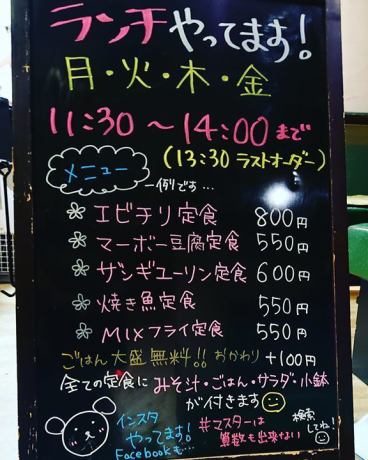 ランチやってます!
月・火・木・金
11:30～14:00まで
(13:30 ラストオーダー)
メニュー
一例です…
エビチリ定食 800円
マーボー豆腐定食 550円
ザンギユーリン定食 600円
焼き魚定食 550円
MIXフライ定食 550円
ごはん大盛無料!! おかわり +100円
全ての定食に みそ汁・ごはん・サラダ・小鉢
が付きます
インスタ
やってます!
Facebookも…
#マスターは
算数も出来ない
検索
してね!